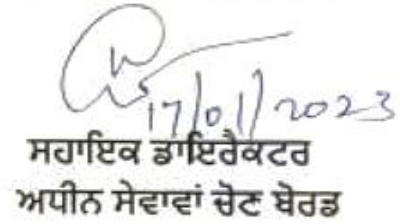 17/01/2023
ਸਹਾਇਕ ਡਾਇਰੈਕਟਰ
ਅਧੀਨ ਸੇਵਾਵਾਂ ਚੋਣ ਬੋਰਡ